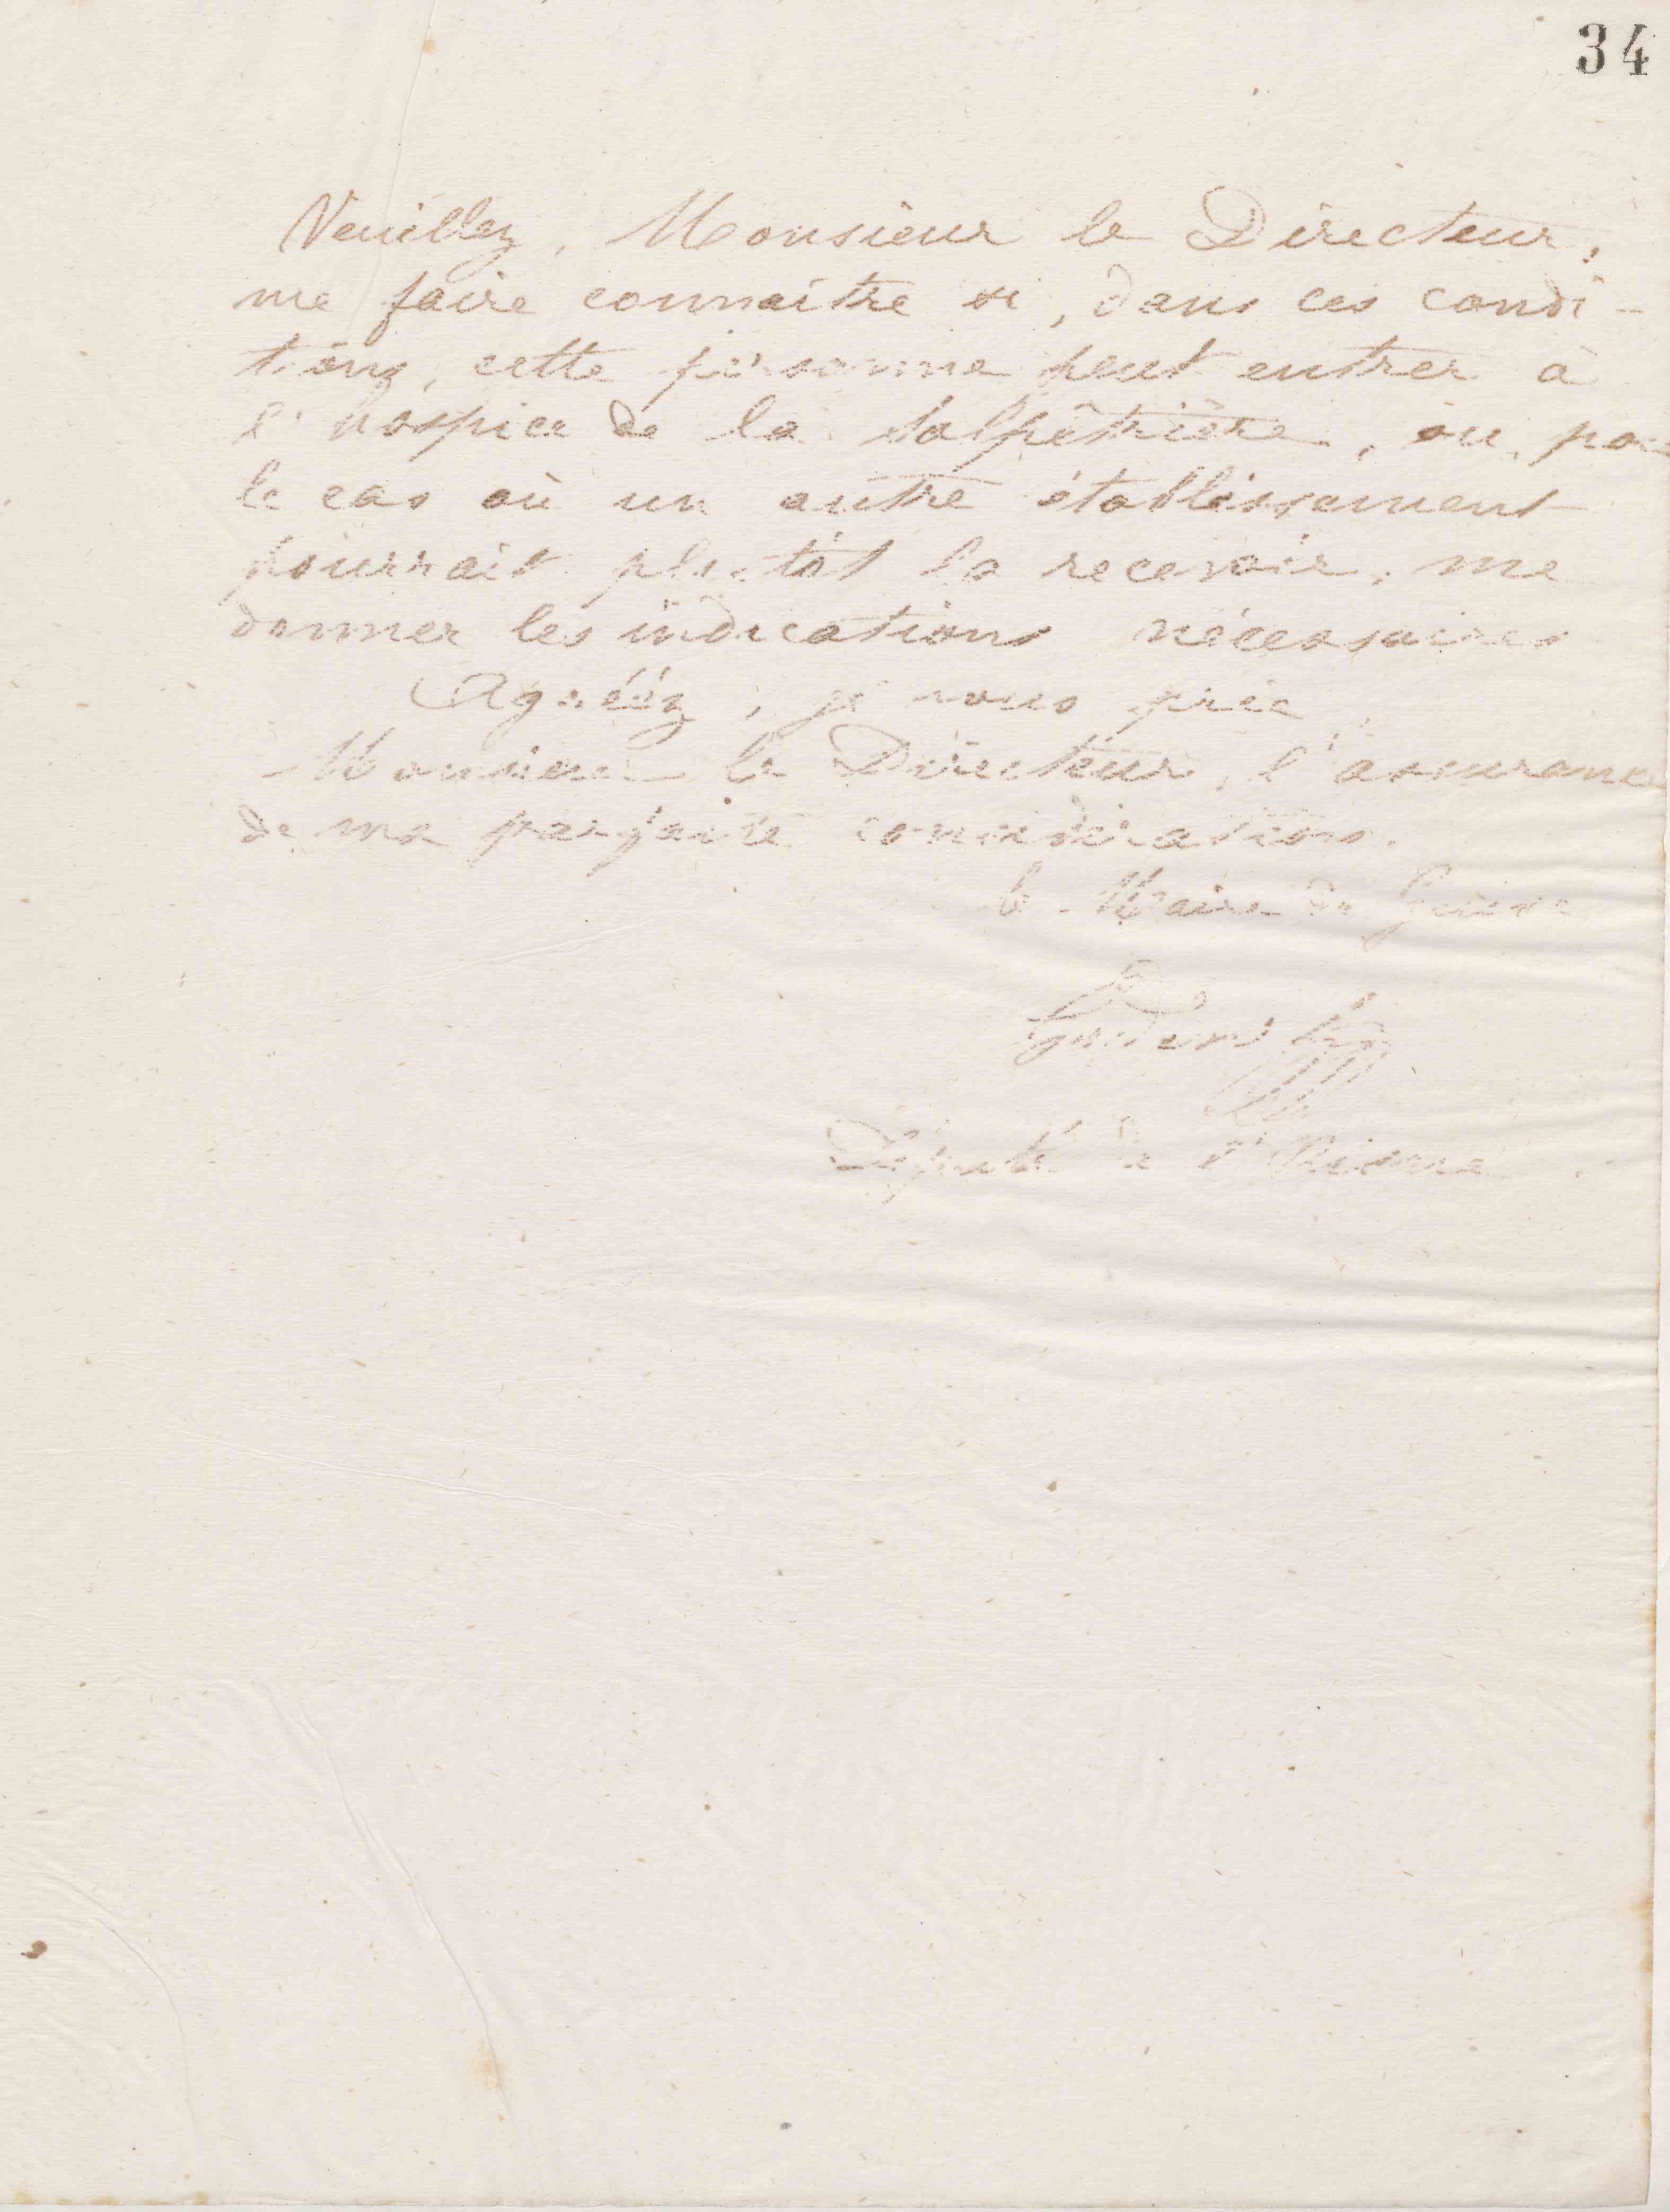 34
Veuillez, Monsieur le Directeur,
me faire connaître si, dans ces condi-
tions, cette personne peut entrer à
l'hospice de la Salpêtrière, ou, pour
le cas où un autre établissement
pourrait plutôt la recevoir, me
donner les indications nécessaires
Agréez, je vous prie,
Monsieur le Directeur, l'assurance
de ma parfaite considération.
le Maire de Guise
Godin
Député de l'Aisne